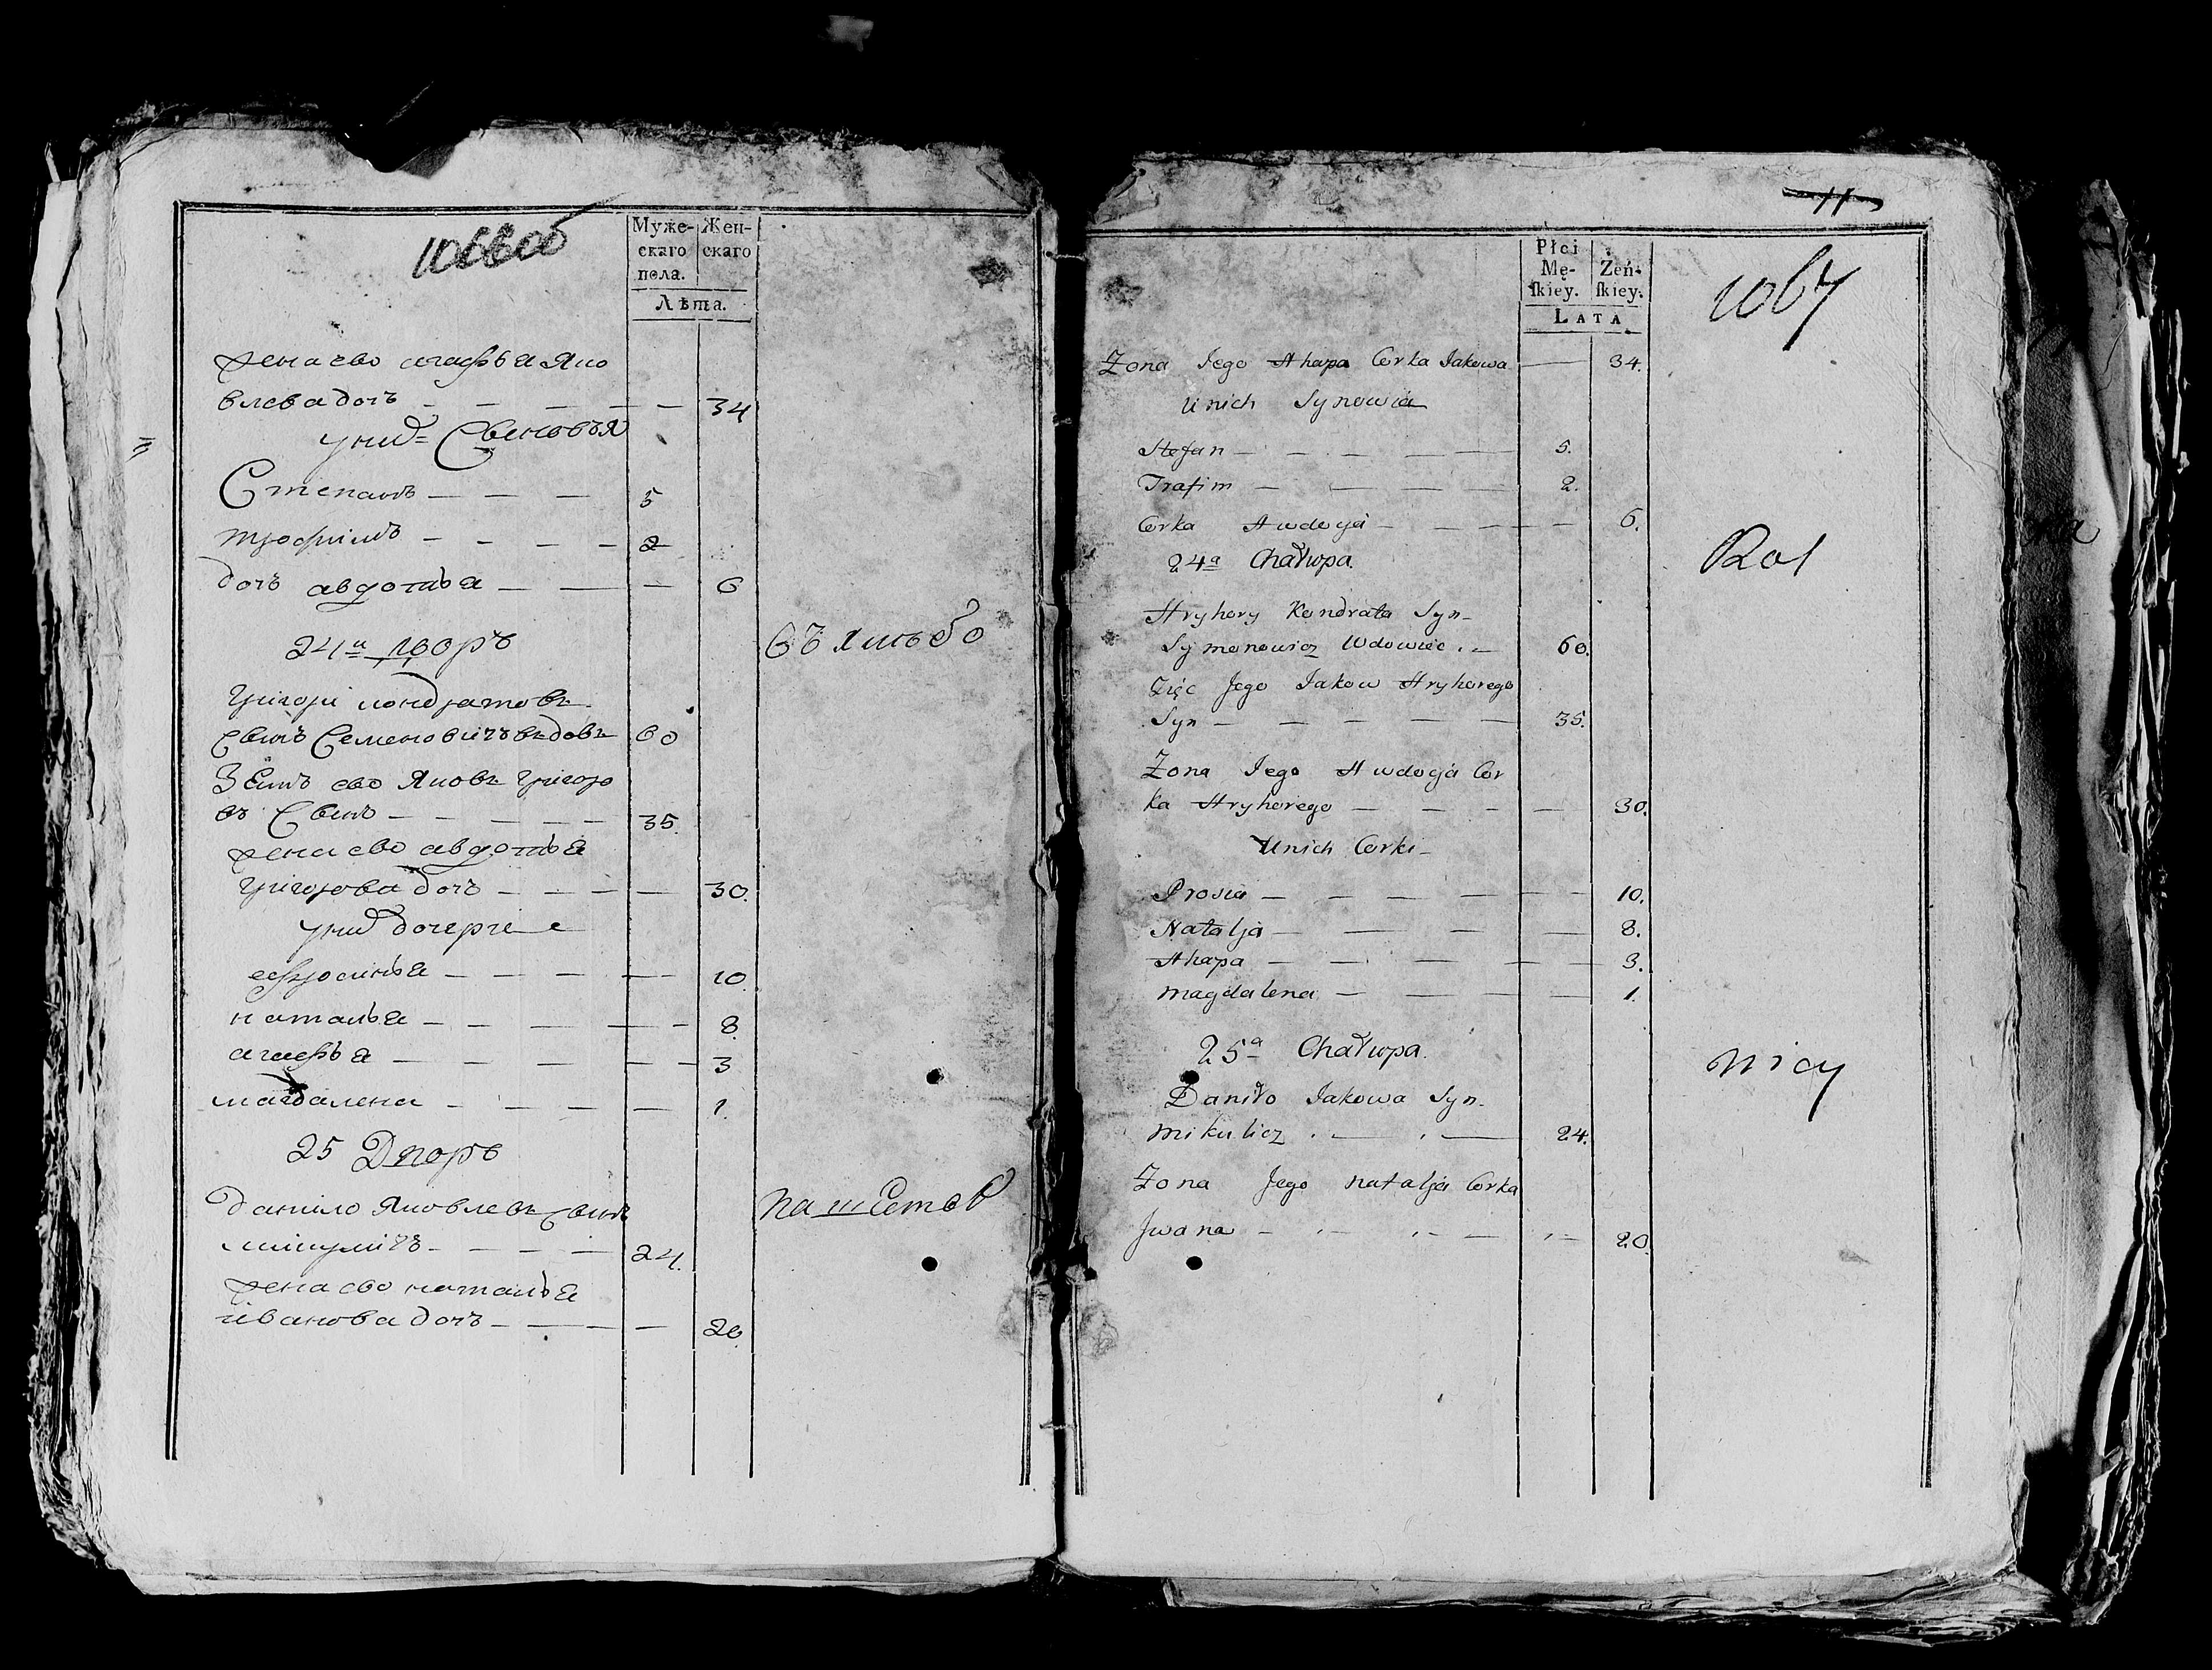 Муже-
скаго
пола.
Жен-
скаго
Лѣта.
жена ево агафья Яко
влева дочь 34
у них Сыновья
Степанъ 5
трофимъ 2
дочь авдотья 6
24й дворъ
григори кондратовъ
Сынъ Семеновичъ вдовъ 60
Зять ево Яковъ григоро
въ Сынъ 35.
жена ево авдотья
григорова дочь 30.
у них дочерие
ефросинья 10.
наталья 8.
агафья 3
магдалена 1.
25 Дворъ
данило Яковлевъ Сынъ
микуличъ 24.
жена ево наталья
ивановa дочь 20.
11
1067
Płci
Mę-
ſkiey.
Żeń-
ſkiey.
LATA
Zona Jego Ahapa Corka Jakowa 34.
Unich Synowia
Stefan 5.
Trafim 2.
Corka Awdocja 6.
24a Chałupa.
Hryhory Kondrata Syn
Symonowicz Wdowiec 60.
Zięc Jego Jakow Hryhorego
Syn 35.
Zona Jego Awdocja Cor
ka Hryhorego 30.
Unich Corki
Prosia 10.
Natalja 8.
Ahapa 3.
Magdalena 1.
25a Chałupa.
Daniło Jakowa Syn
Mikulicz 24.
Zona Jego Natalja Corka
Jwana 20.